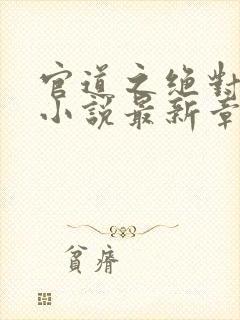 官道之绝對
小說最新章
貧瘠